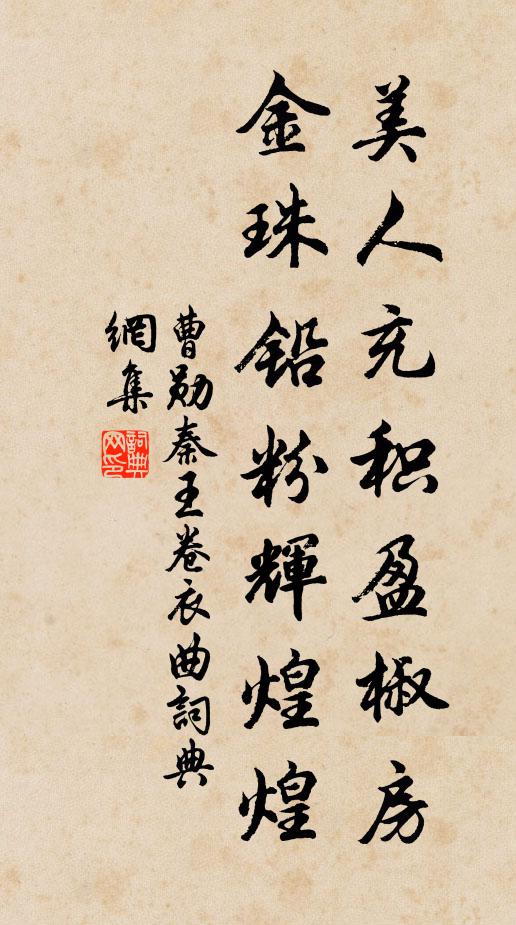 美人充积盈椒房
金珠铅粉輝煌煌
曹勛秦王卷衣曲詞典
網集
詞典
网印